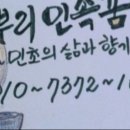 뿌리민속품
민초의 삶과 향기
10~7372~1